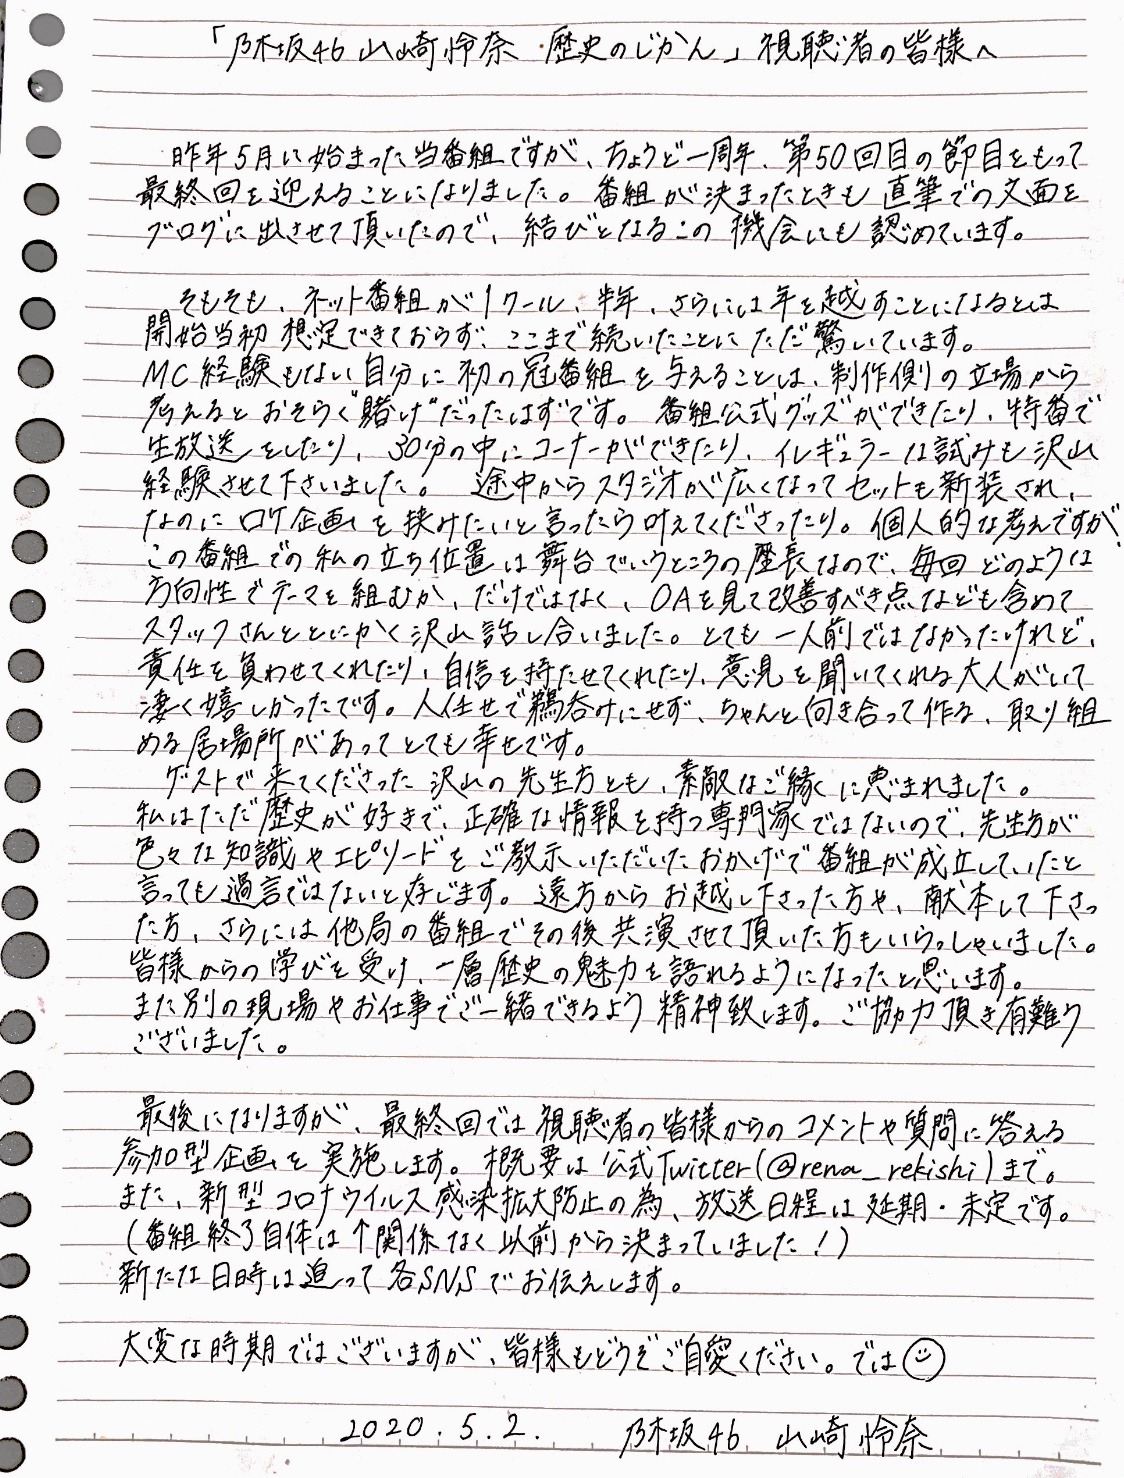 「乃木坂46 山崎怜奈 歴史のじかん」視聴者の皆様へ
昨年5月に始まった当番組ですが、ちょうど一周年、第50回目の節目をもって
最終回を迎えることになりました。番組が決まったときも直筆での文面を
ブログに出させて頂いたので、結びとなるこの機会にも認めています。
そもそも、ネット番組が1クール、半年、さらには年を越すことになるとは
開始当初想定できておらず、ここまで続いたことにただ驚いています。
MC経験もない自分に初の冠番組を与えることは、制作側の立場から
考えるとおそらく"賭け"だったはずです。番組公式グッズができたり、特番で
生放送をしたり、30分の中にコーナーができたり、イレギュラーな試みも沢山
経験させて下さいました。途中からスタジオが広くなってセットも新装され、
なのにロケ企画を挟みたいと言ったら叶えてくださったり。個人的な考えですが、
この番組での私の立ち位置は舞台でいうところの座長なので、毎回どのような
方向性でテーマを組むか、だけではなく、OAを見て改善すべき点なども含めて
スタッフさんととにかく沢山話し合いました。とても一人前ではなかったけれど、
責任を負わせてくれたり、自信を持たせてくれたり、意見を聞いてくれる大人がいて
凄く嬉しかったです。人任せで鵜呑みにせず、ちゃんと向き合って作る、取り組
める居場所があってとても幸せです。
ゲストで来てくださった沢山の先生方とも、素敵なご縁に恵まれました。
私はただ歴史が好きで、正確な情報を持つ専門家ではないので、先生方が
色々な知識やエピソードをご教示いただいたおかげで番組が成立していたと
言っても過言ではないと存じます。遠方からお越し下さった方や、献本して下さっ
た方、さらには他局の番組でその後共演させて頂いた方もいらっしゃいました。
皆様からの学びを受け、一層歴史の魅力を語れるようになったと思います。
また別の現場やお仕事でご一緒できるよう精神致します。ご協力頂き有難う
ございました。
最後になりますが、最終回では視聴者の皆様からのコメントや質問に答える
参加型企画を実施します。概要は公式Twitter(@rena_rekishi)まで。
また、新型コロナウイルス感染拡大防止の為、放送日程は延期・未定です。
(番組終了自体は↑関係なく以前から決まっていました！)
新たな日時は追って各SNSでお伝えします。
大変な時期ではございますが、皆様もどうぞご自愛ください。では☺
2020.5.2. 乃木坂46 山崎怜奈